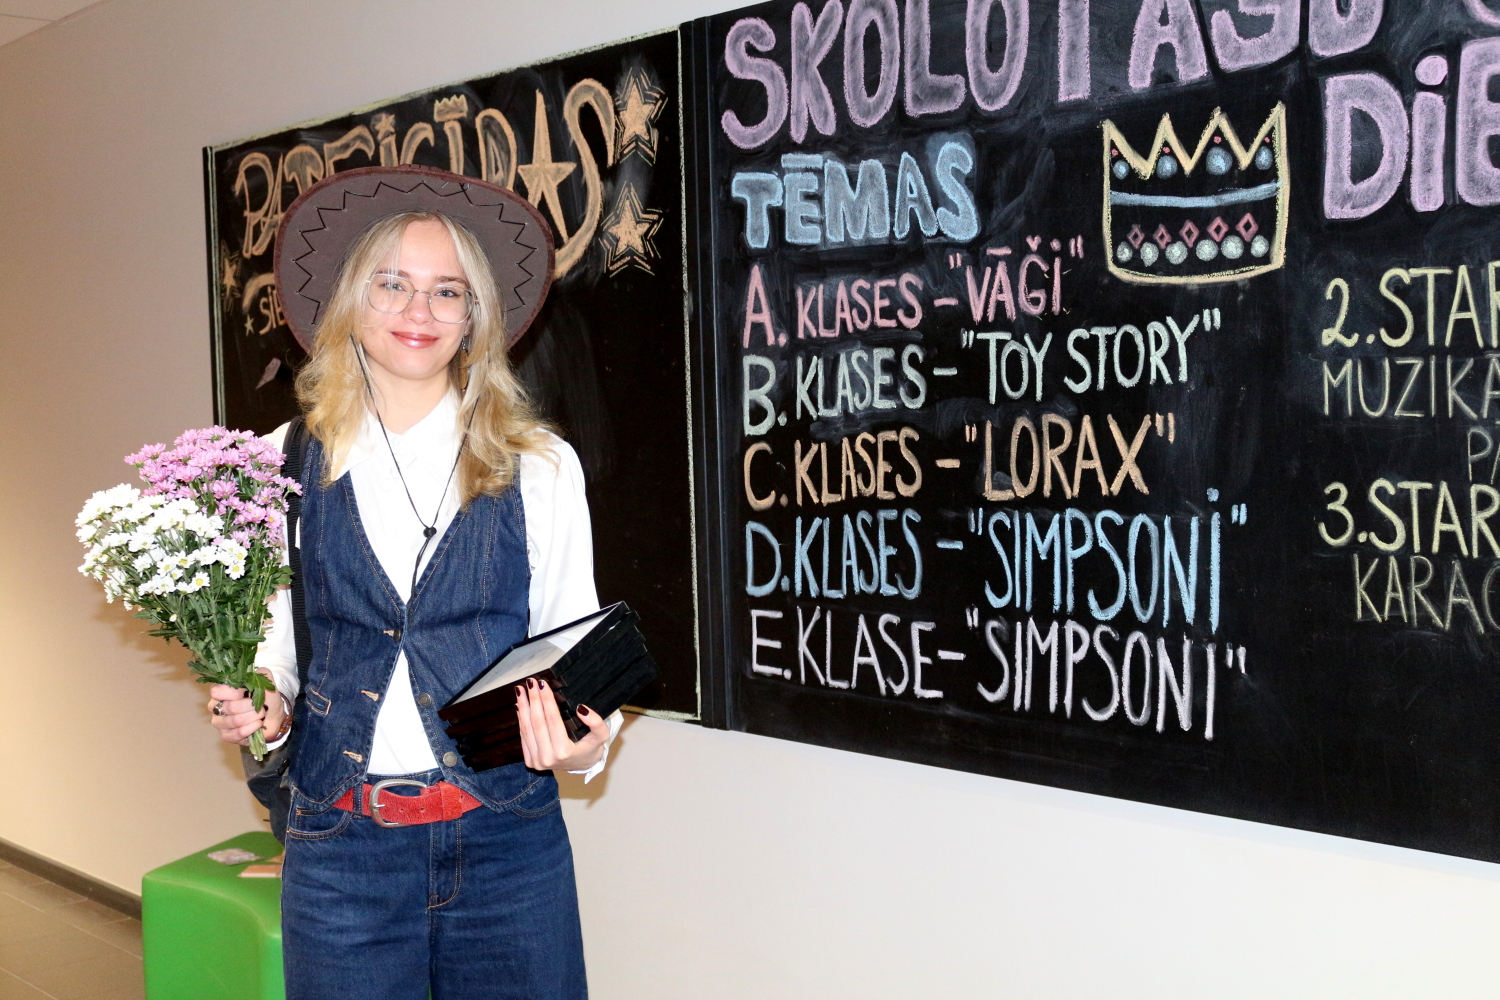 PATEICĪBAS
SKOLOTĀJU
DiE
TĒMAS
A. KLASES – "VĀĢi"
B. KLASES – "TOY STORY"
C. KLASES – "LORAX"
D. KLASES – "SIMPSONi"
E. KLASE – "SIMPSONI"
2. STAR
MUZIKĀ
3. STAR
KARAO